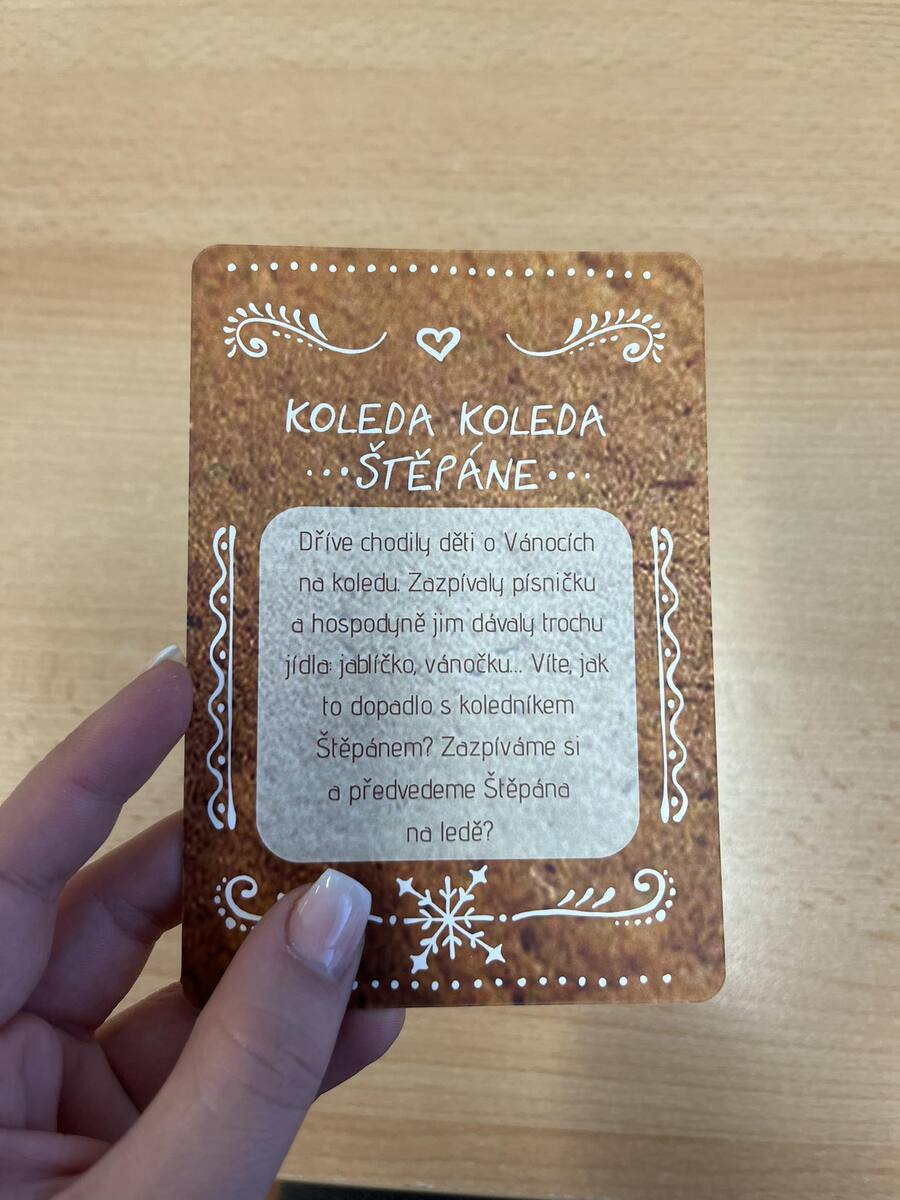 KOLEDA KOLEDA
...ŠTĚPÁNE...
Dříve chodily děti o Vánocích
na koledu. Zazpívaly písničku
a hospodyně jim dávaly trochu
jídla: jablíčko, vánočku... Víte, jak
to dopadlo s koledníkem
Štěpánem? Zazpíváme si
a předvedeme Štěpána
na ledě?